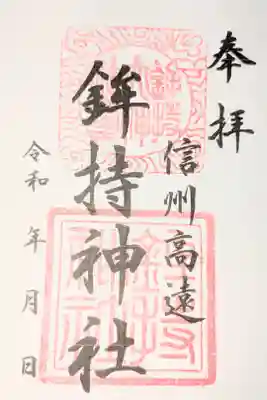 奉拝
信州高遠
鉾持神社
令和 年 月 日